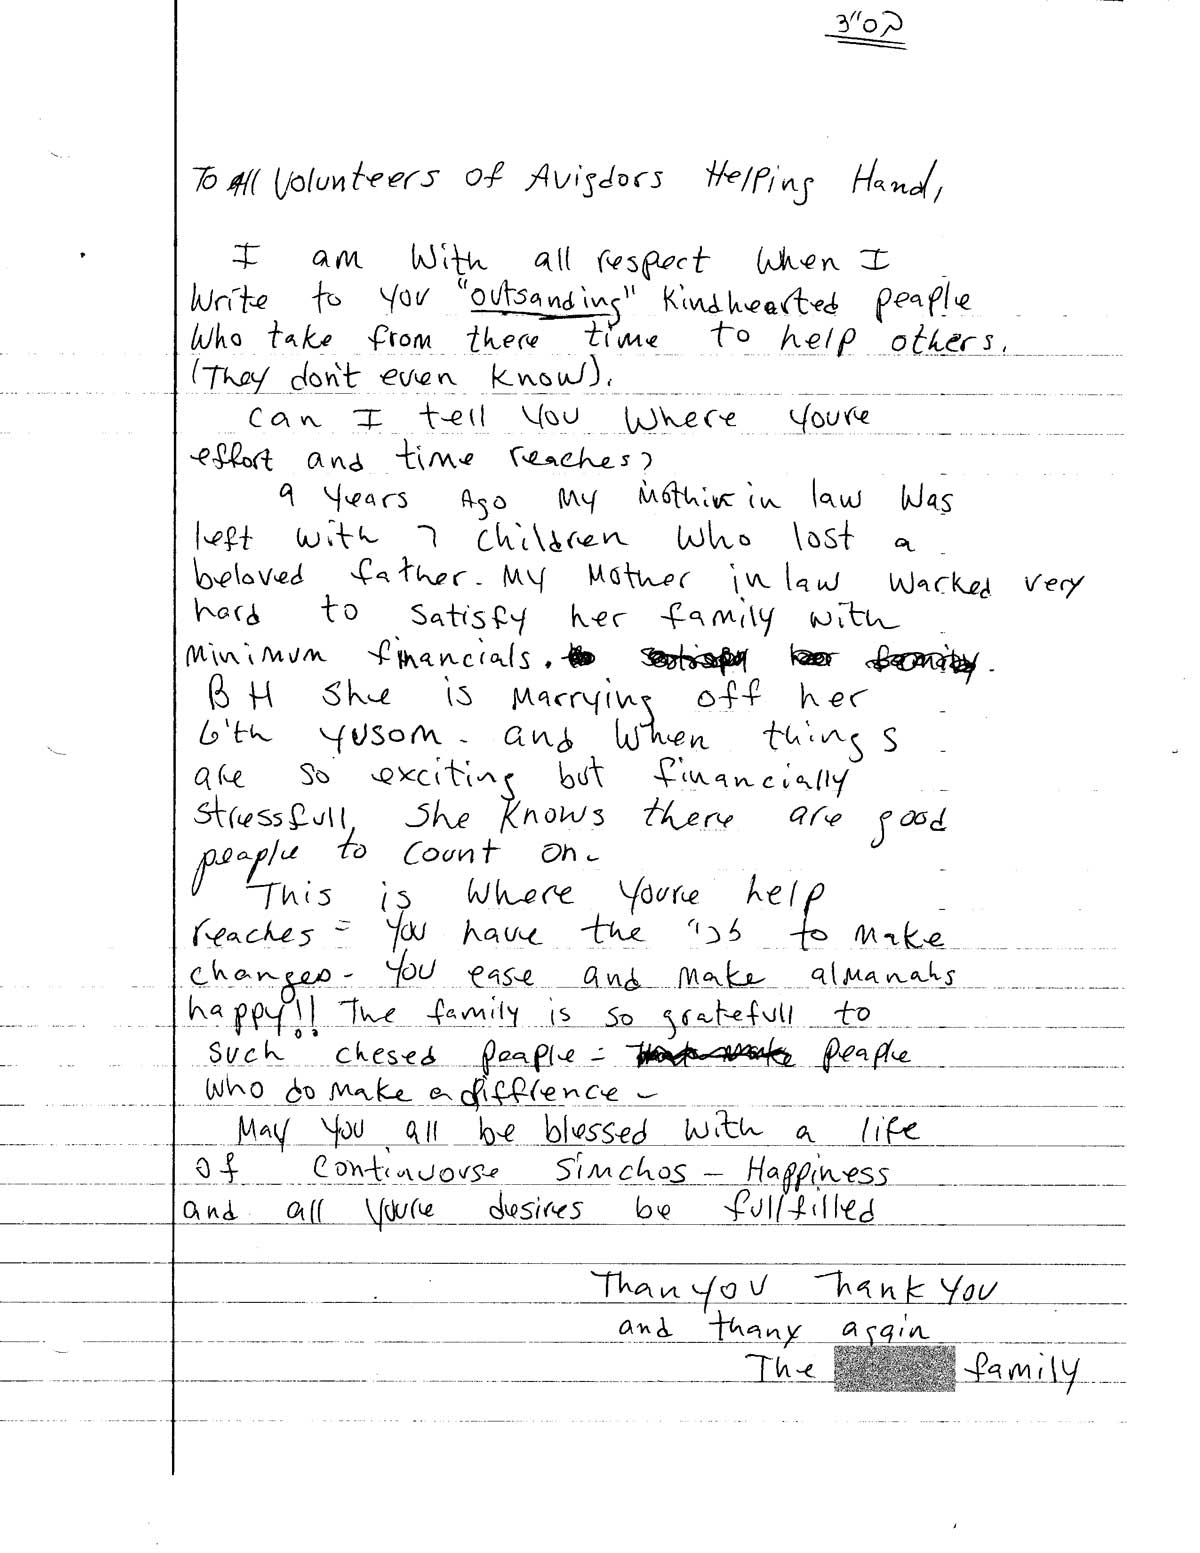 בס"ד
To All Volunteers of Avigdors Helping Hand,
I am With all respect When I
Write to you "outsanding" Kindhearted peaple
Who take from there time to help others.
(They don't even know).
can I tell you Where youre
effort and time reaches?
9 years Ago My Mother in law Was
left with 7 children Who lost a
beloved father. My Mother in law warked very
hard to satisfy her family with
minimum financials.
BH she is Marrying off her
6'th yusom - and When things
are so exciting but financially
stressfull, She Knows there are good
peaple to count on -
This is Where youre help
reaches = You have the כח to Make
changes - You ease and make almanahs
happy!! The family is so gratefull to
such chesed peaple = peaple
who do make a diffrence -
May You all be blessed with a life
of continuouse simchos - Happiness
and all youre desires be fullfilled
Than you Thank You
and thany again
The family